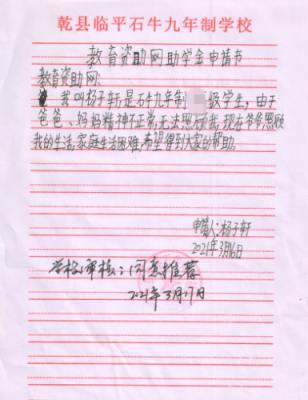 乾县临平石牛九年制学校
教育资助网助学金申请书
教育资助网:
我叫杨子轩,是石牛九年制 级学生,由于
爸爸、妈妈精神不正常,无法照顾我,现在爷爷照顾
我的生活,家庭生活困难,希望得到大家的帮助。
申请人:杨子轩
2021年3月16日
学校审核:同意推荐
2021年3月17日